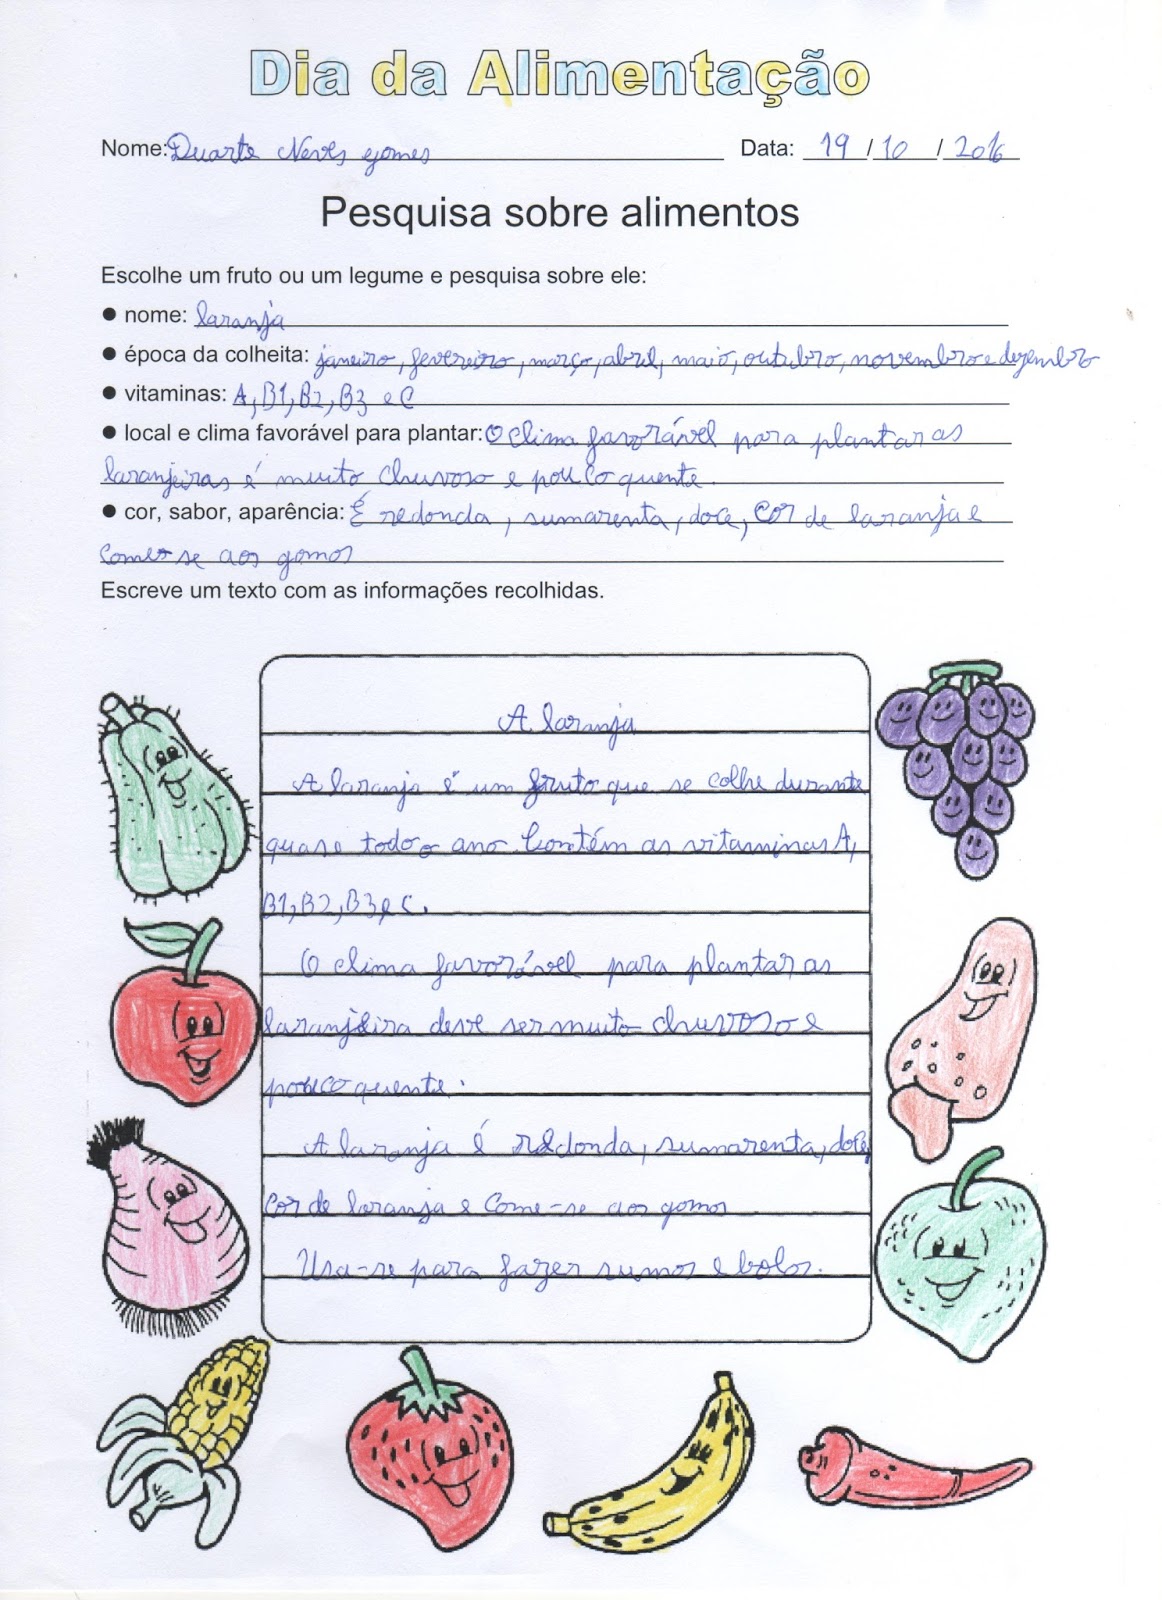 Dia da Alimentação
Nome: Duarte Neves gomes Data: 19 / 10 / 2016
Pesquisa sobre alimentos
Escolhe um fruto ou um legume e pesquisa sobre ele:
● nome: laranja
● época da colheita: janeiro, fevereiro, março, abril, maio, outubro, novembro e dezembro
● vitaminas: A, B1, B2, B3 e C
● local e clima favorável para plantar: O clima favorável para plantar as
laranjeiras é muito chuvoso e pouco quente.
● cor, sabor, aparência: É redonda, sumarenta, doce, cor de laranja e
come-se aos gomos
Escreve um texto com as informações recolhidas.
A laranja
A laranja é um fruto que se colhe durante
quase todo o ano. Contém as vitaminas A,
B1, B2, B3 e C.
O clima favorável para plantar as
laranjeira deve ser muito chuvoso e
pouco quente.
A laranja é redonda, sumarenta, doce,
cor de laranja e come-se aos gomos
Usa-se para fazer sumos e bolos.